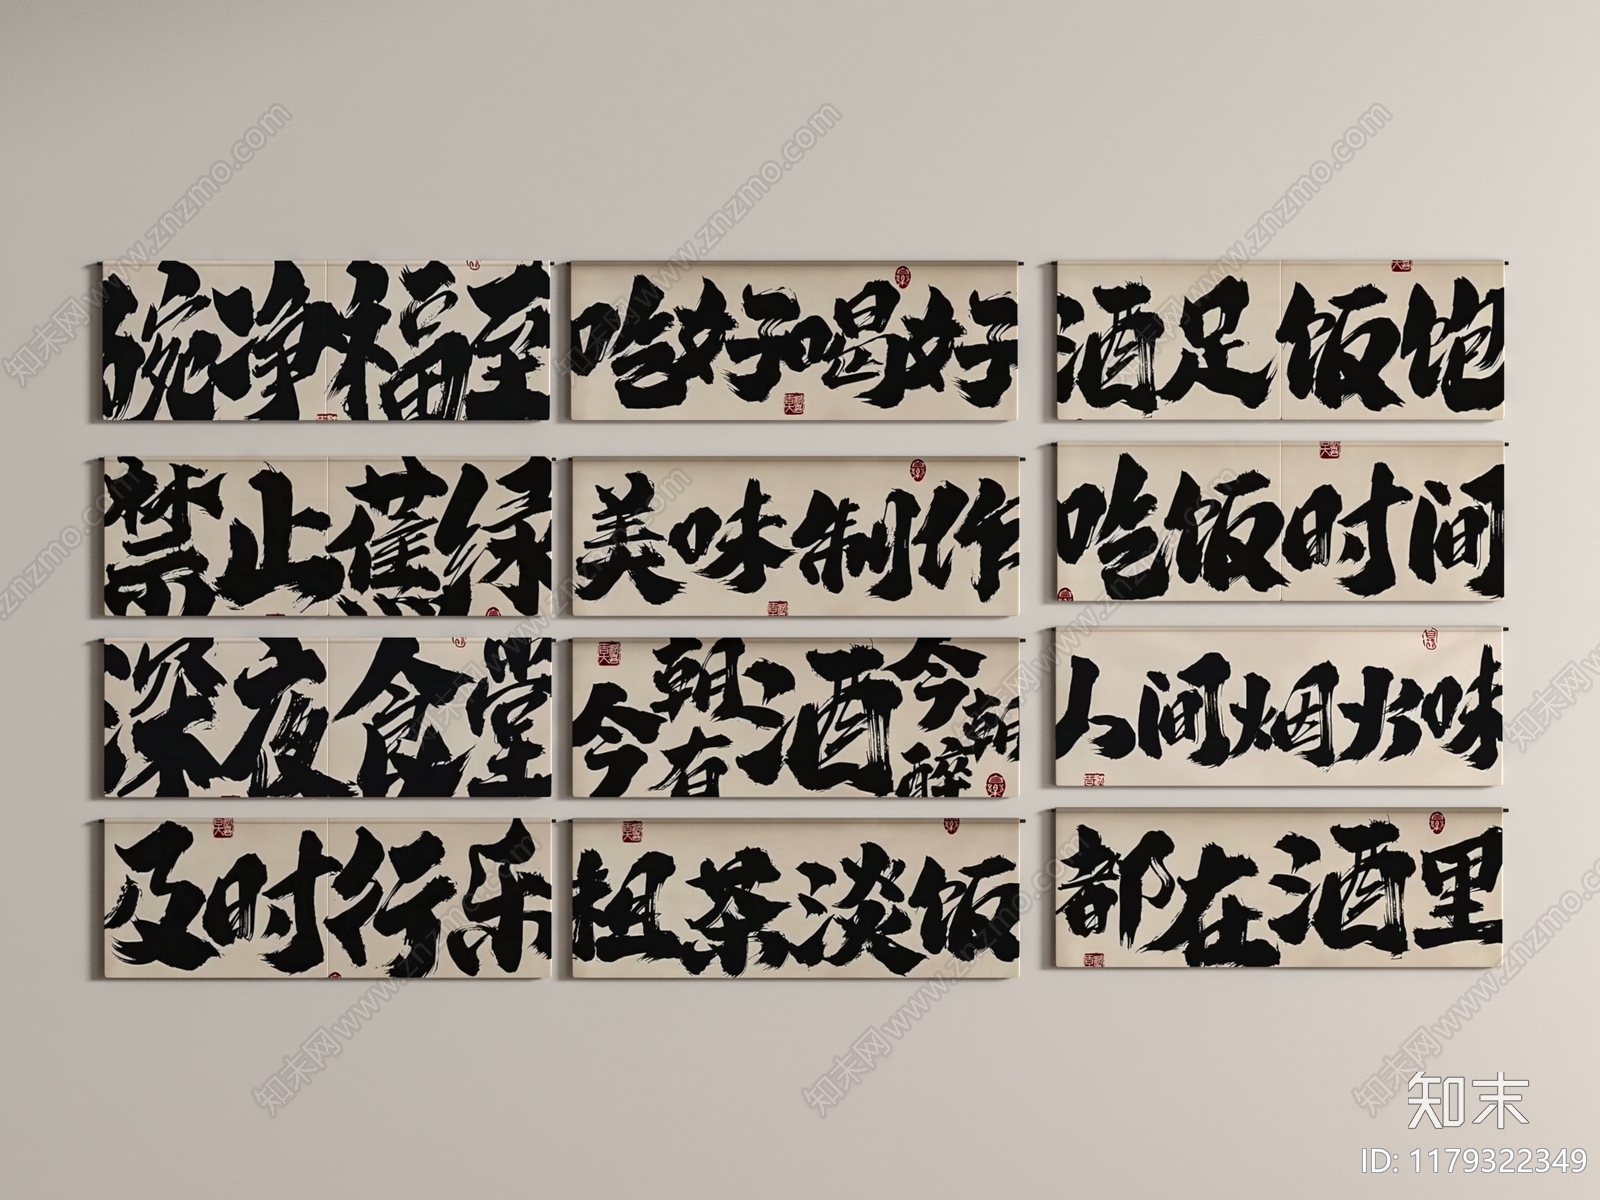 碗净福至
吃好喝好
酒足饭饱
禁止蕉绿
美味制作
吃饭时间
深夜食堂
今朝有酒今朝醉
人间烟火味
及时行乐
粗茶淡饭
都在酒里
知末网www.znzmo.com
知末
ID: 1179322349